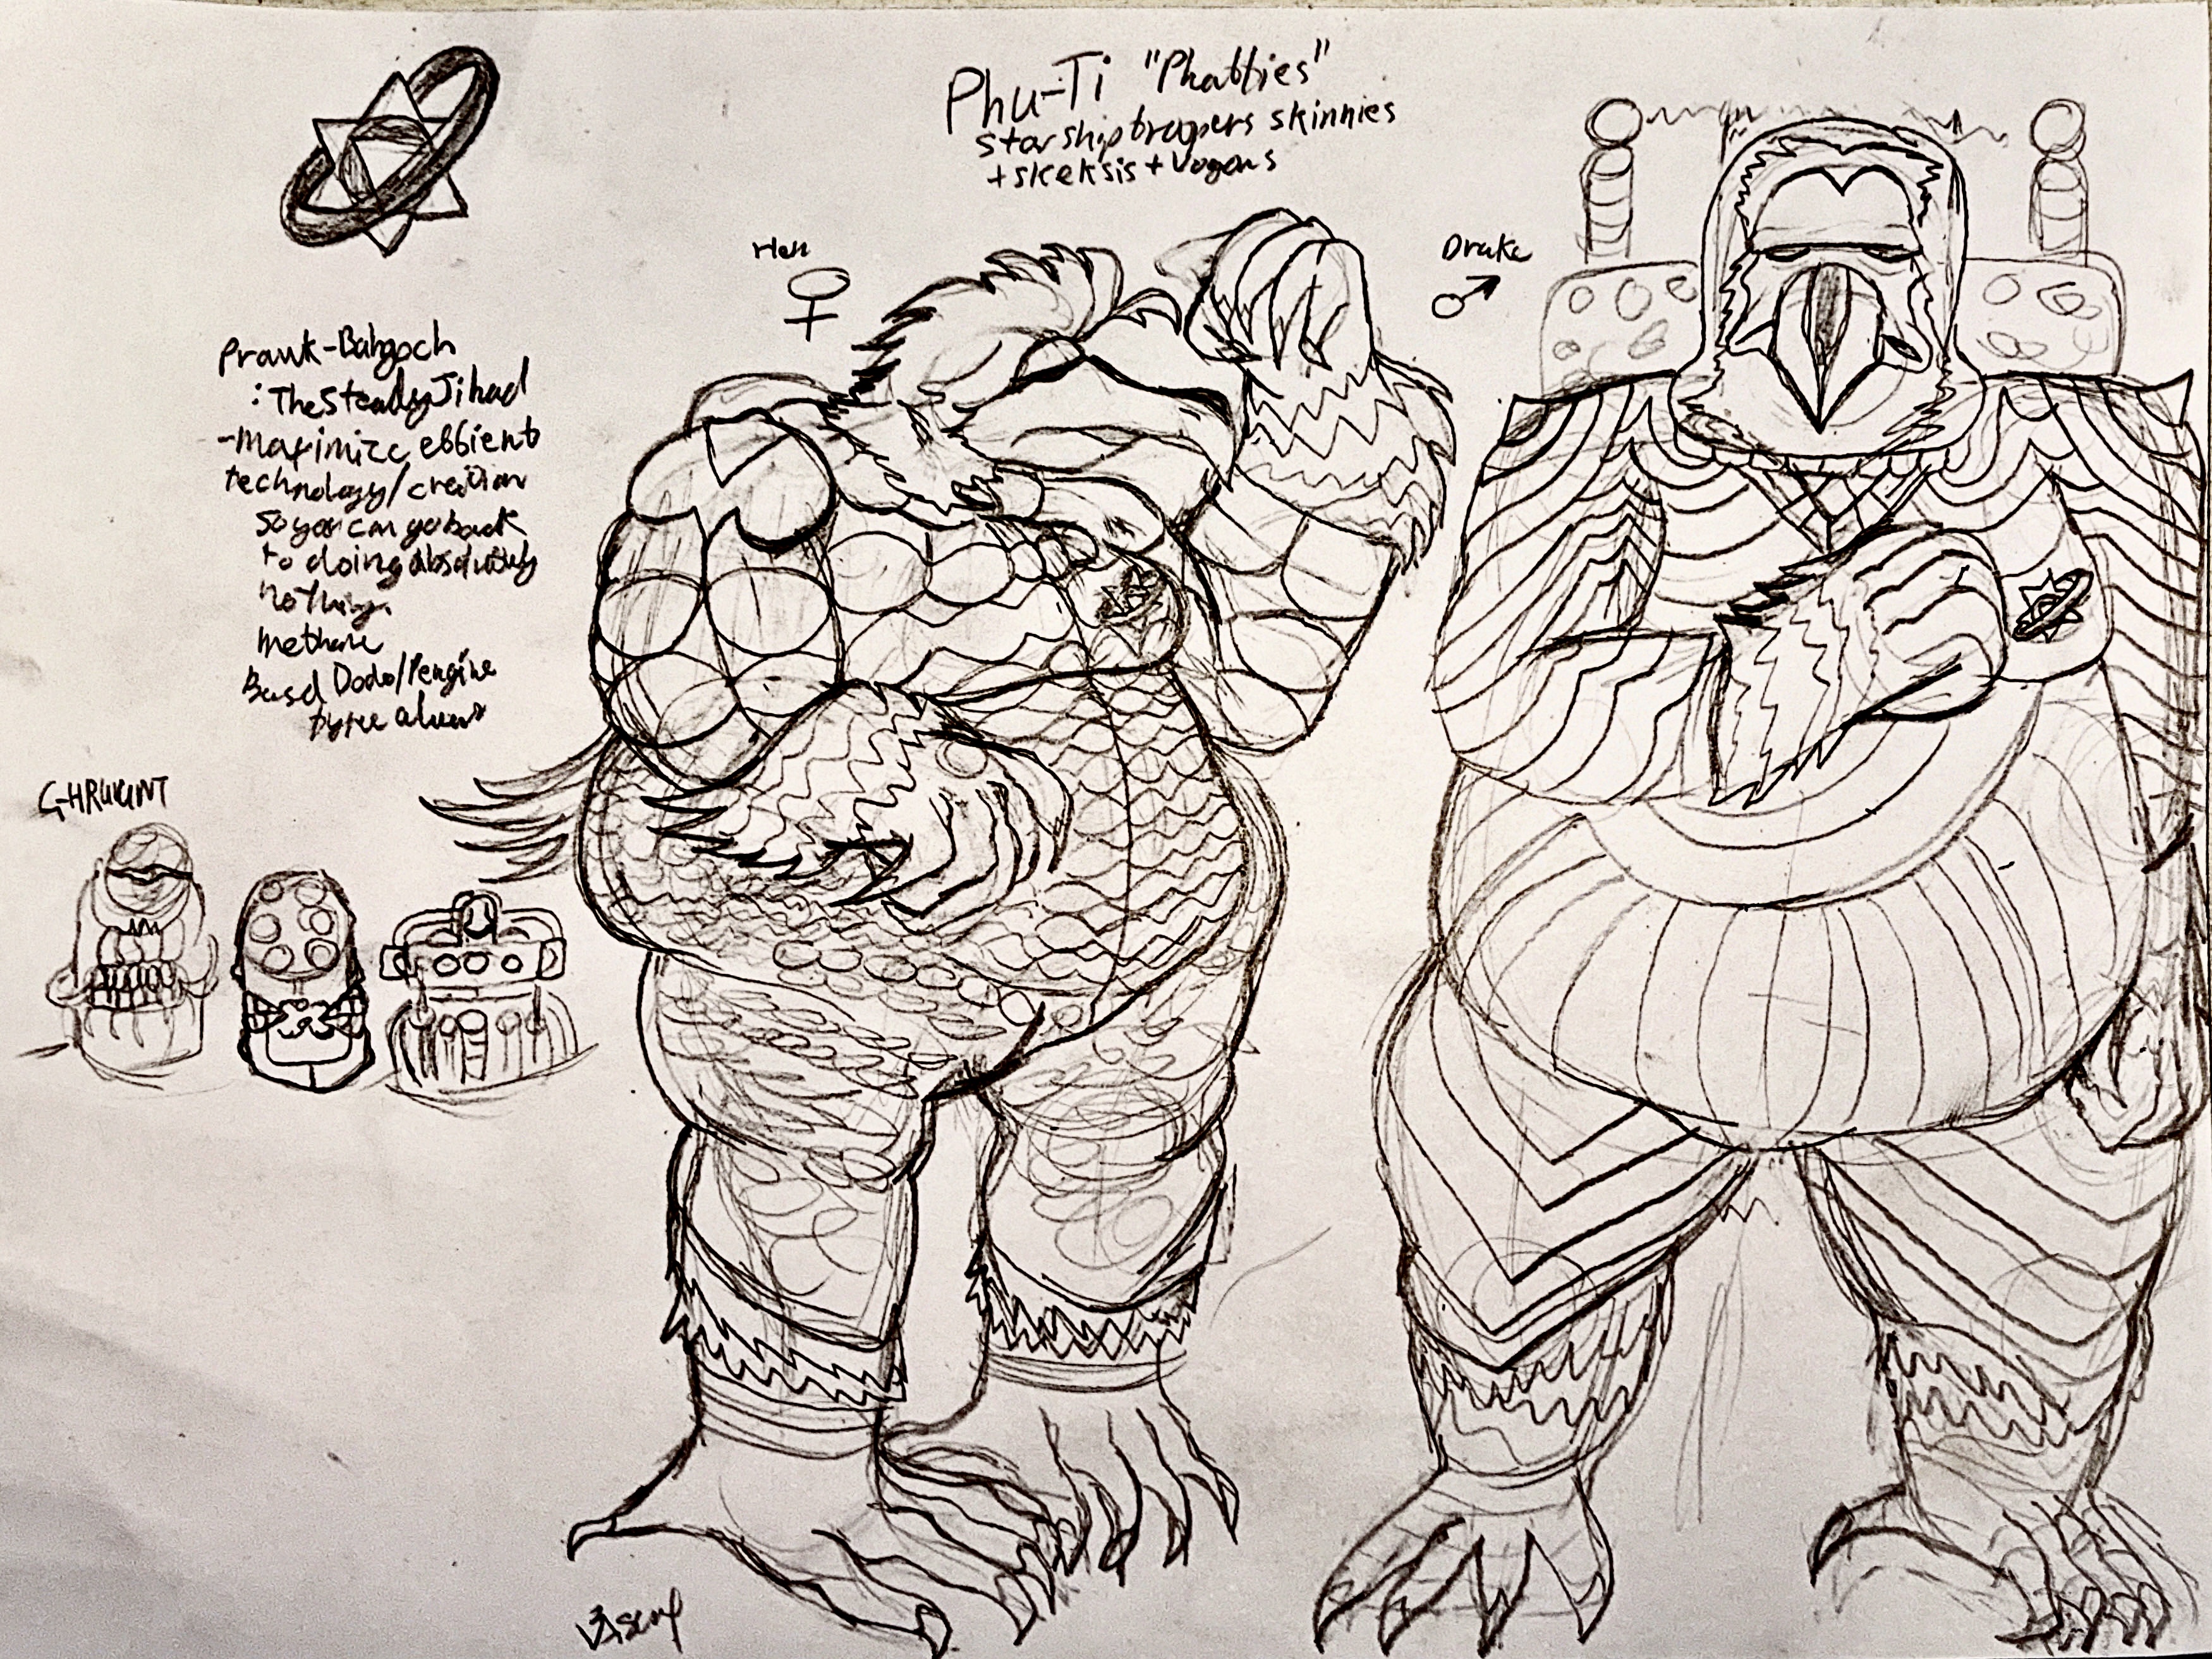 Phu-Ti "Phatties"
starship troopers skinnies
+ skeksis + Vogons
Hen
♀
Drake
♂
Prawk-Bahgoch
: The Steady Jihad
- Maximize effient
technology/creation
so you can go back
to doing absolutely
nothing.
methane
Based Dodo/Pengine
bytee aliens
GHRUUNT